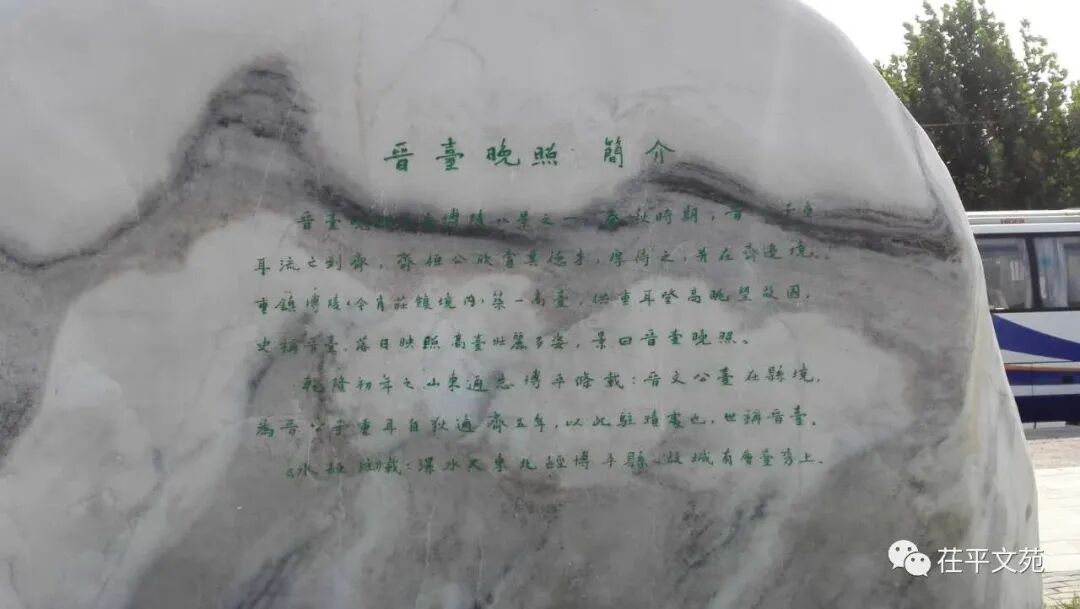 晉臺晚照 簡介
晉臺晚照 博陵八景之一 春秋時期，晉 子重
耳流亡到齊，齊桓公欣賞其德才，厚待之，並在齊邊境
重鎮博陵（今肖莊鎮境內）築一高臺，供重耳登高眺望故國，
史稱晉臺。落日映照高臺壯麗多姿，景曰晉臺晚照。
乾隆初年之山東通志博平條載：晉文公臺在縣境，
為晉公子重耳自狄適齊五年，以此駐蹟處也，世稱晉臺。
《水經注》載：漯水又東北經博平縣 故城有層臺秀上、
茌平文苑